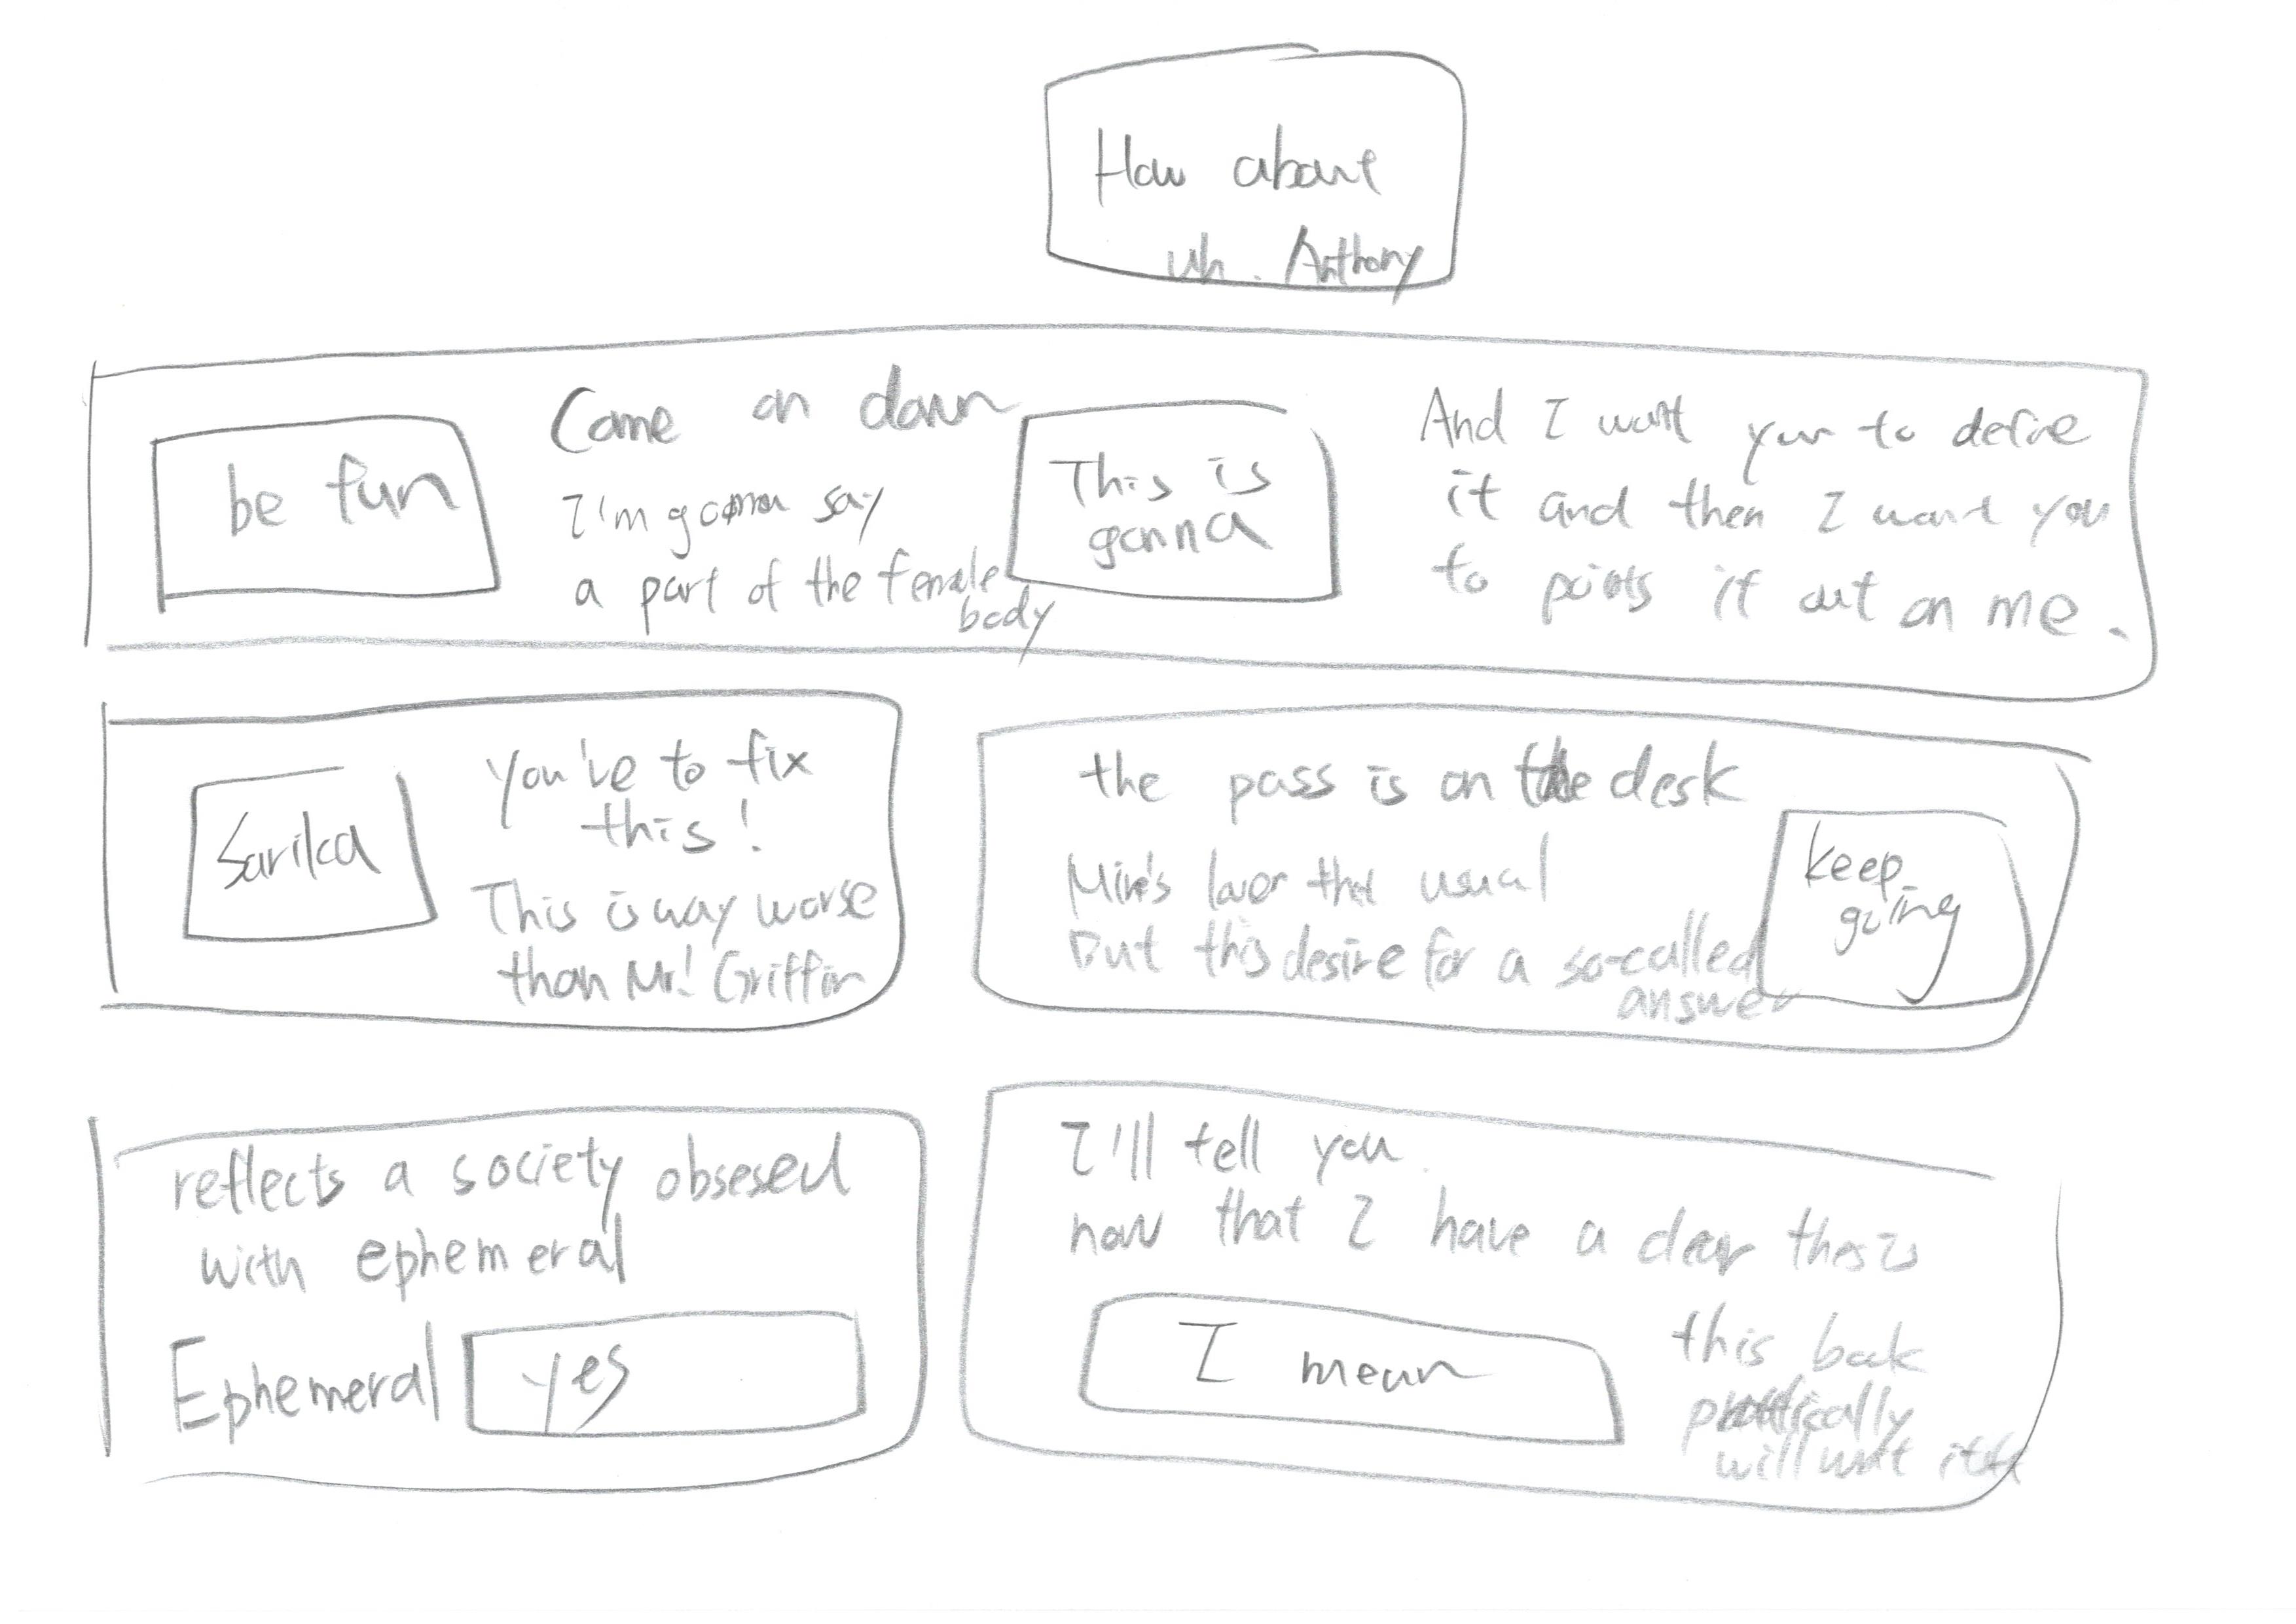 How about
uh. Anthony
be fun
Come on down
I'm gonna say
a part of the female
body
This is
gonna
And I want you to define
it and then I want you
to points it out on me.
Sarika
You've to fix
this!
This is way worse
than Mr! Griffin
the pass is on the desk
Mine's lower that usual
But this desire for a so-called
answer
keep
going
reflects a society obsesed
with ephemeral
Ephemeral
yes
I'll tell you.
now that I have a clear thesis
I mean
this book
practically
will